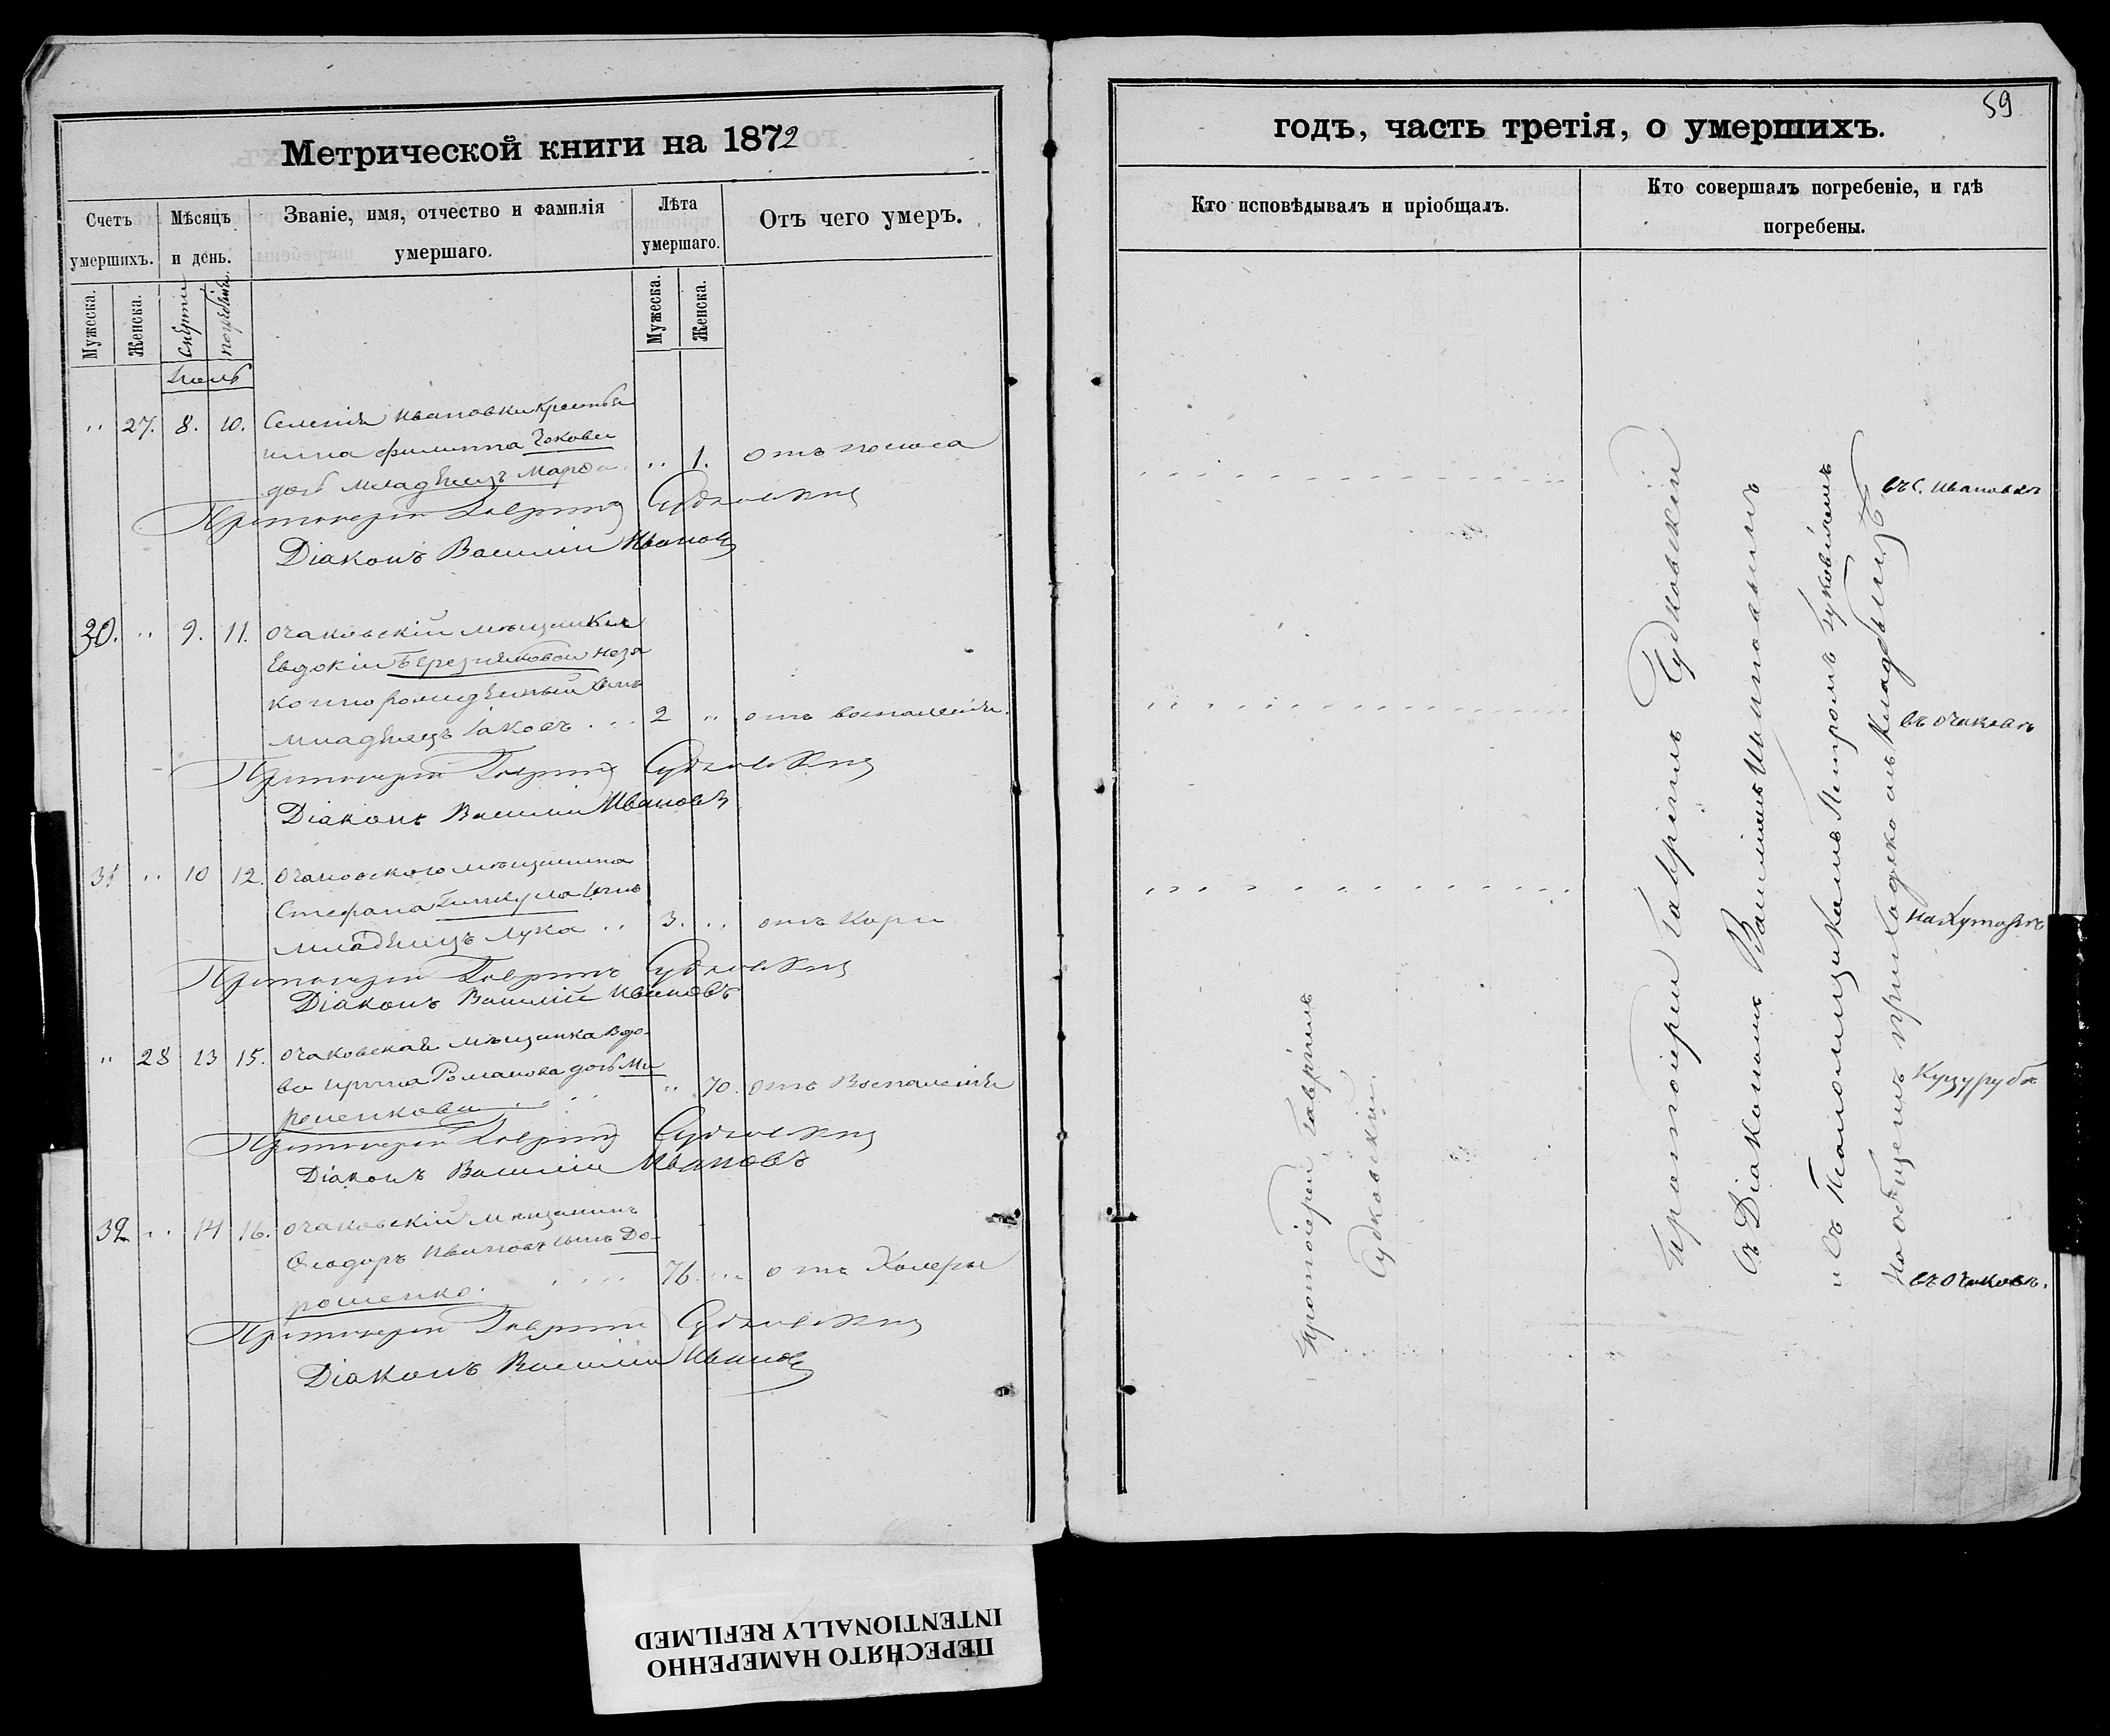 Метрической книги на 1872
Счетъ умершихъ.
Мѣсяцъ и день.
Званіе, имя, отчество и фамилія умершаго.
Лѣта умершаго.
Отъ чего умеръ.
Мужеска.
Женска.
Смерти
погребенія
Мужеска.
Женска.
27. 8. 10. Селенія Ивановки крестья
нина Филиппа
дочь младенецъ Марѳа 1. отъ поноса
Протоіерей Гавріилъ Судковскій
Діаконъ Василій Ивановъ
30. 9. 11. Очаковскій мѣщанки
Евдокіи Березняковой неза
конно рожденный сынъ
младенецъ Іаковъ 2 отъ воспаленія.
Протоіерей Гавріилъ Судковскій
Діаконъ Василій Ивановъ
31 10 12. Очаковскаго мѣщанина
Стефана сынъ
младенецъ Лука 3. отъ Кори
Протоіерей Гавріилъ Судковскій
Діаконъ Василій Ивановъ
28 13 15. Очаковская мѣщанка вдо-
ва Ирина Романова дочь
70. отъ Воспаленія
Протоіерей Гавріилъ Судковскій
Діаконъ Василій Ивановъ
32 14 16. Очаковскій мѣщанинъ
Ѳеодоръ Ивановъ сынъ До-
рошенко. 76. отъ Холеры
Протоіерей Гавріилъ Судковскій
Діаконъ Василій Ивановъ
59
годъ, часть третія, о умершихъ.
Кто исповѣдывалъ и пріобщалъ.
Кто совершалъ погребеніе, и гдѣ
погребены.
Протоіерей Гавріилъ
Судковскій.
Протоіерей Гавріилъ Судковскій
съ Діакономъ Василіемъ Ивановымъ
и съ Пономаремъ Петромъ
На общемъ приходскомъ кладбищѣ
въ с. Ивановкѣ
въ Очаковѣ
на Хуторѣ
Куцурубѣ
въ Очаковѣ.
ПЕРЕСНЯТО НАМЕРЕННО
INTENTIONALLY REFILMED